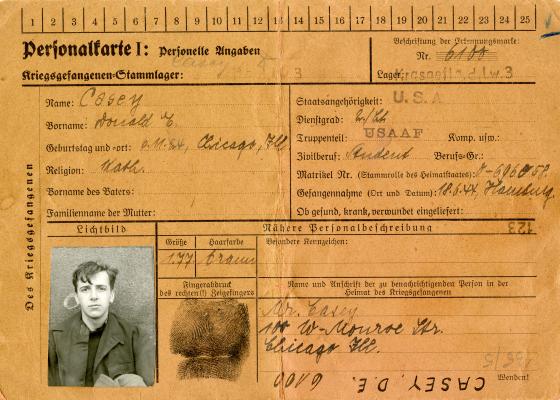 1 2 3 4 5 6 7 8 9 10 11 12 13 14 15 16 17 18 19 20 21 22 23 24 25
Personalkarte I: Personelle Angaben
Kriegsgefangenen-Stammlager:
Beschriftung der Erkennungsmarke:
Nr. 6100
Lager: d.Lw.3
Des Kriegsgefangenen
Name: Casey
Vorname: Donald E.
Geburtstag und -ort: Chicago, Ill.
Religion: Kath.
Vorname des Vaters:
Familienname der Mutter:
Staatsangehörigkeit: U.S.A
Dienstgrad: 2/Lt.
Truppenteil: USAAF Komp. usw.:
Zivilberuf: Student Berufs-Gr.:
Matrikel Nr. (Stammrolle des Heimatstaates): O-
Gefangennahme (Ort und Datum): 18.6.44 Hamburg
Ob gesund, krank, verwundet eingeliefert:
123
Lichtbild
Nähere Personalbeschreibung
Größe
Haarfarbe
Besondere Kennzeichen:
1.77
braun
Fingerabdruck
des rechten(!) Zeigefingers
Name und Anschrift der zu benachrichtigenden Person in der
Heimat des Kriegsgefangenen
Mr. Casey
W-Monroe Str.
Chicago Ill.
6100
CASEY, D.E.
Wenden!